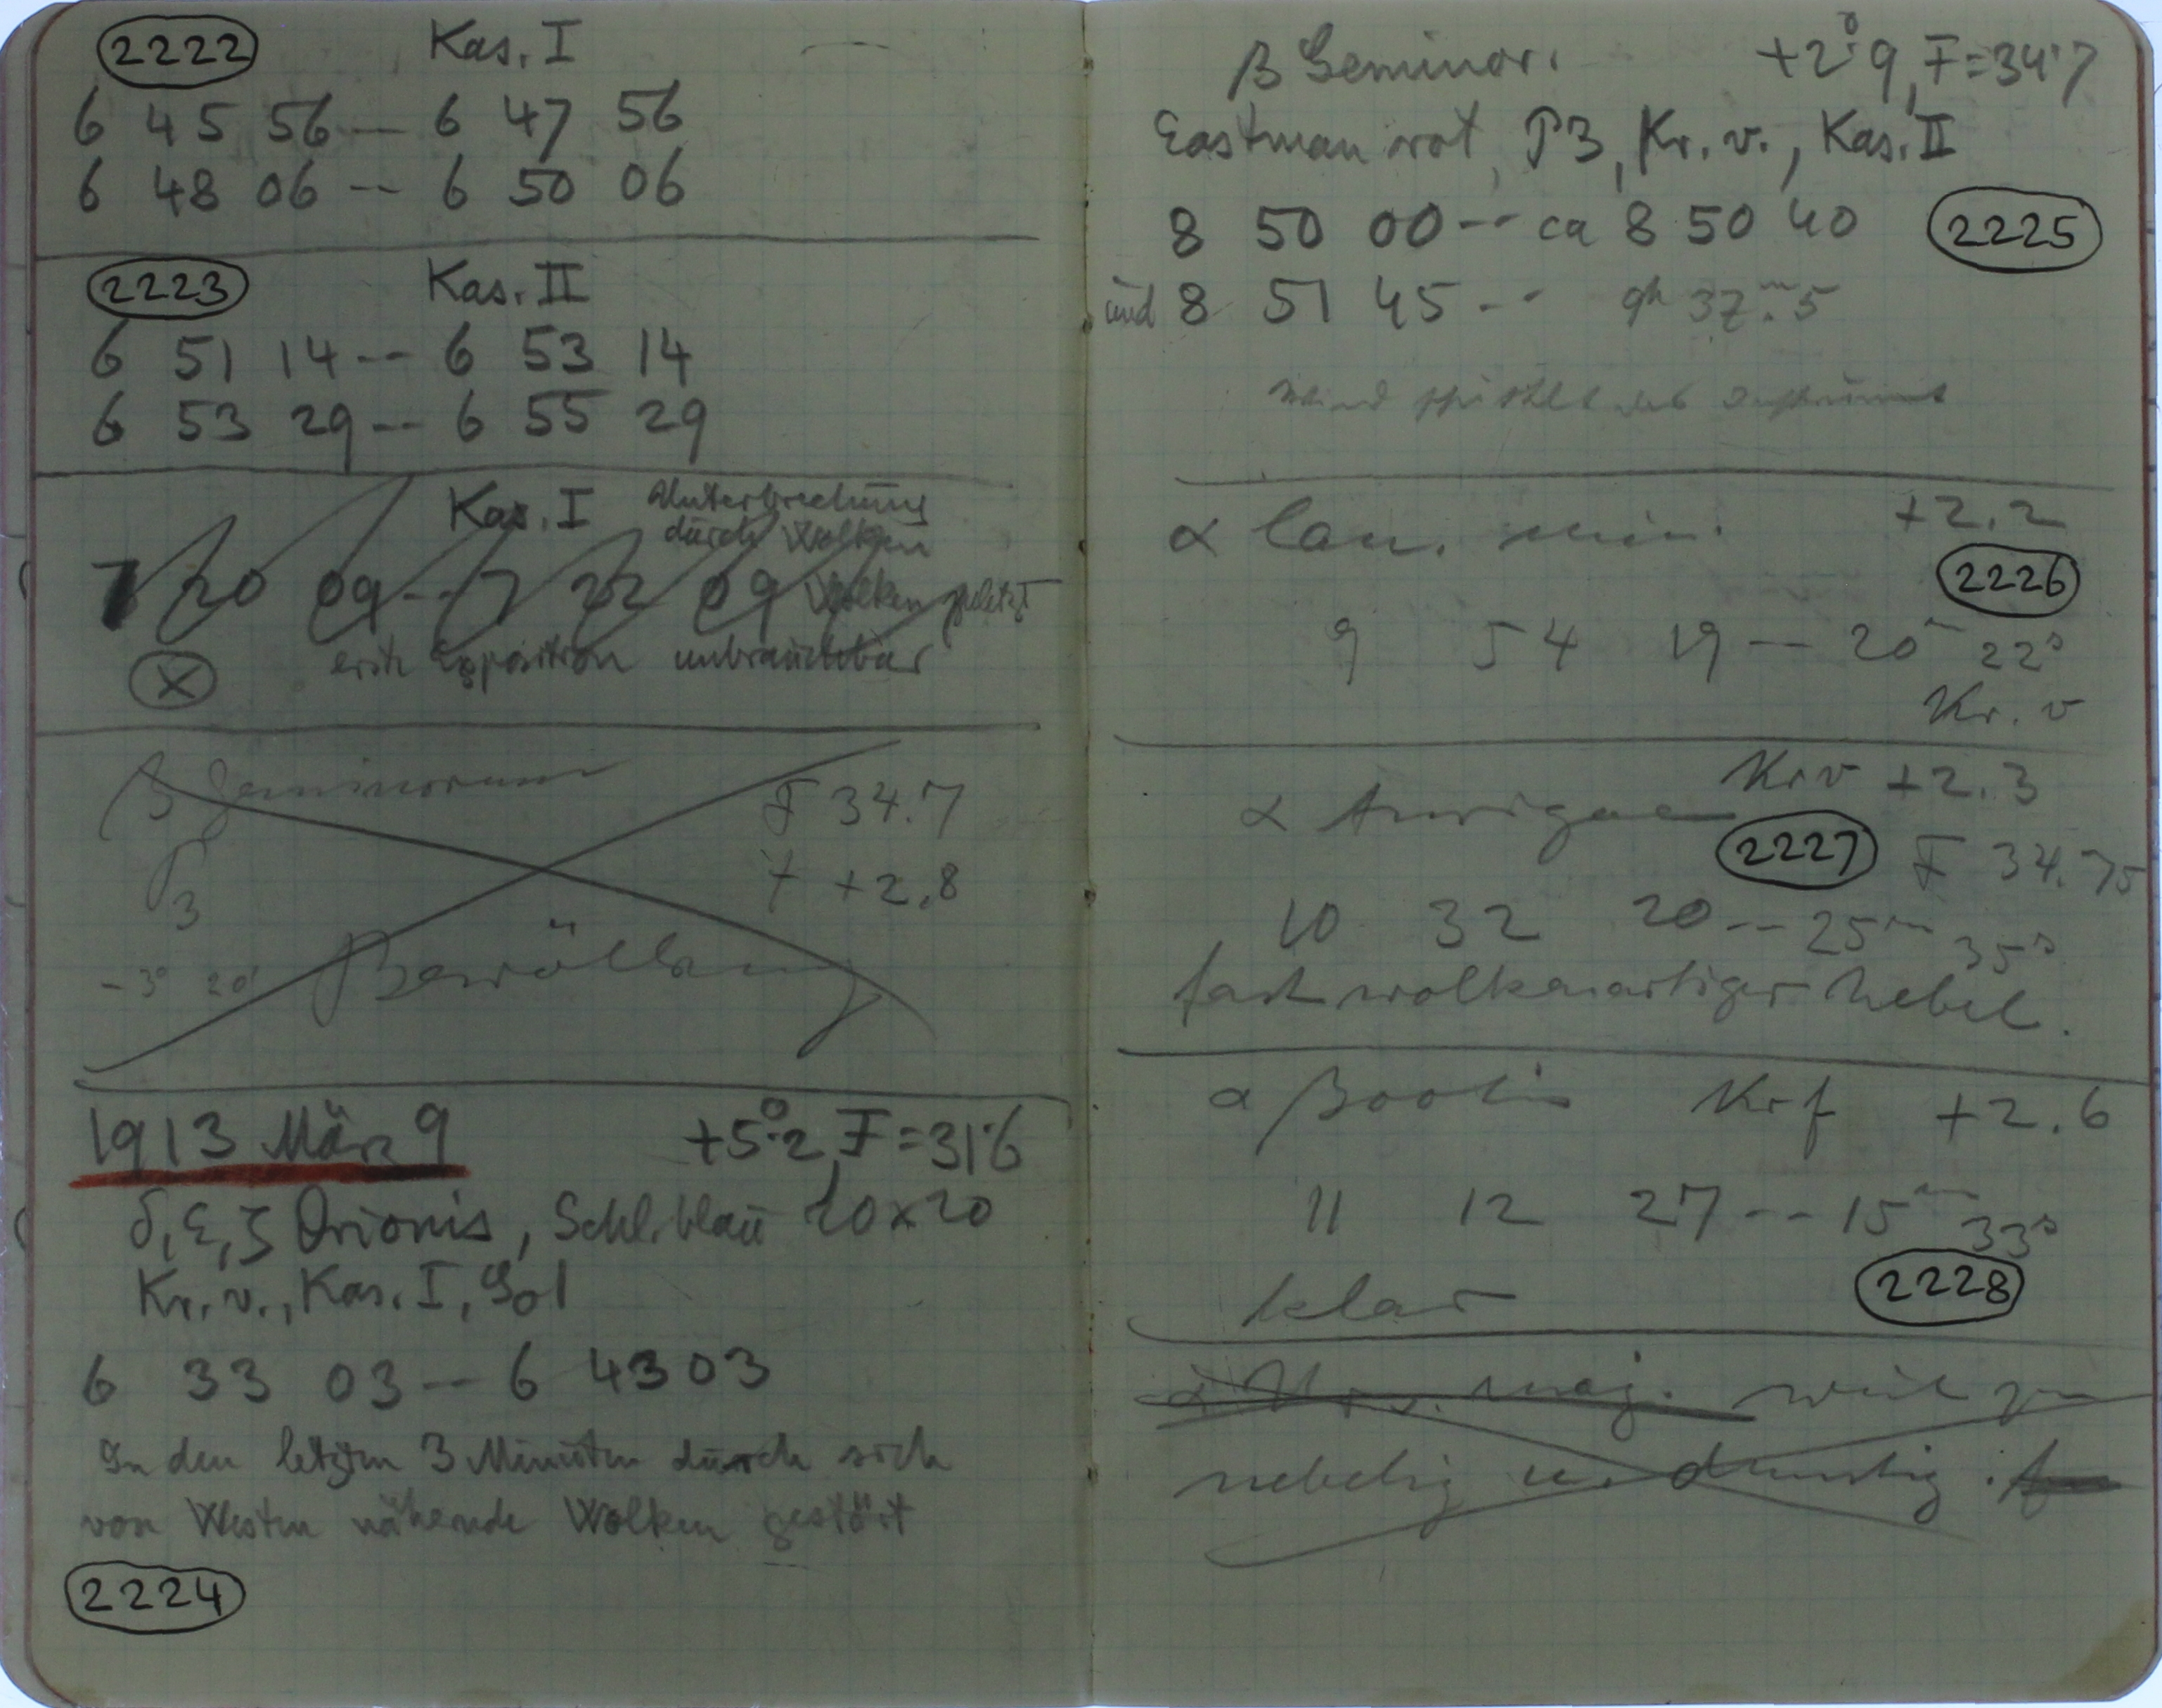 2222 Kas. I
6 45 56 -- 6 47 56
6 48 06 -- 6 50 06
2223 Kas. II
6 51 14 -- 6 53 14
6 53 29 -- 6 55 29
Kas. I Unterbrechung
durch Wolken
7 20 09 -- 7 22 09 Wolken
erste Exposition unbrauchbar
X
β Geminorum F 34.7
P3 t +2,8
-3° 20' Bewölkung
1913 März 9 +5°.2, F=31.6
δ, ε, ζ Orionis, Schl. blau 20x20
Kr. v., Kas. I,
6 33 03 -- 6 43 03
In den letzten 3 Minuten durch sich
von Westen nähernde Wolken gestört
2224
β Geminor. +2°.9, F=34.7
Eastman rot, P3, Kr. v., Kas. II
8 50 00 -- ca 8 50 40 2225
und 8 51 45 -- 9h 37m.5
α Can. min. +2.2
2226
9 54 19 -- 20m 22s
Kr. v
α Aurigae Kr v +2.3
2227 F 34.75
10 32 20 -- 25m 35s
fast wolkenartiger Nebel.
α Bootis Kr f +2.6
11 12 27 -- 15m 33s
klar 2228
α Urs. maj. weil zu
nebelig u. dunstig.